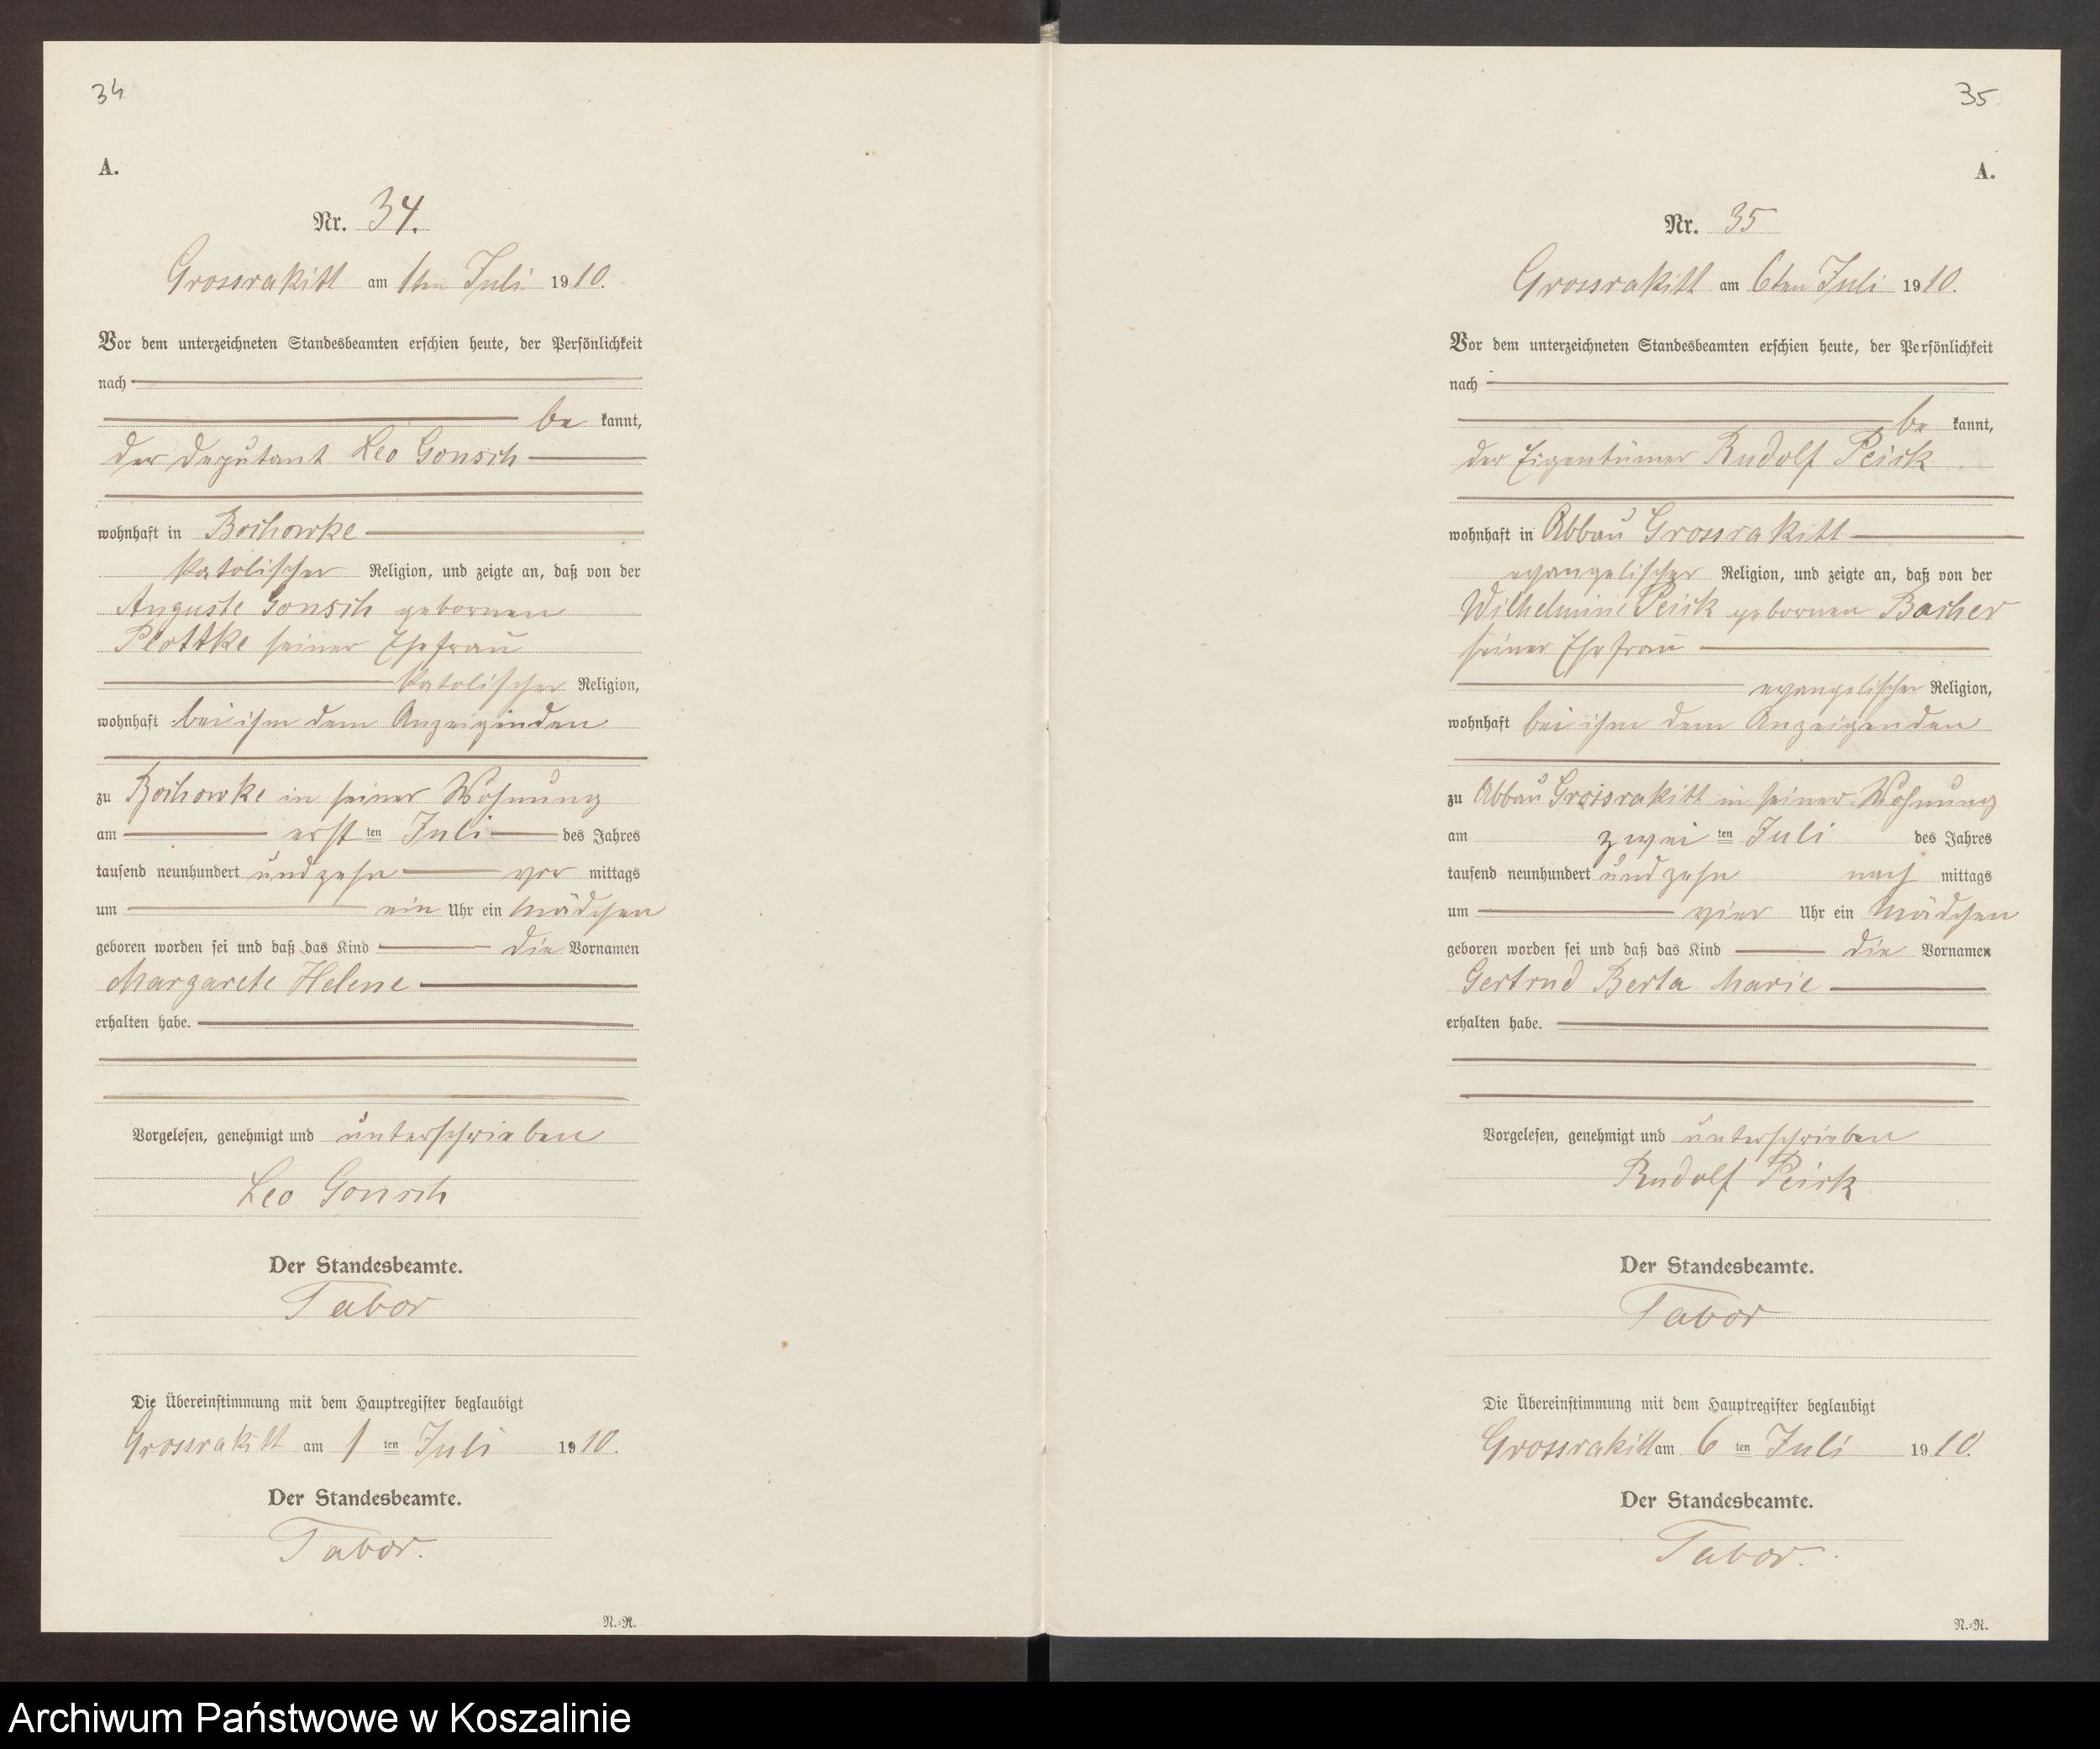 34
A.
Nr. 34.
Grossrakitt am 1ten Juli 1910.
Vor dem unterzeichneten Standesbeamten erschien heute, der Persönlichkeit
nach
be kannt,
der Deputant Leo Gonsch
wohnhaft in Bochowke
katolischer Religion, und zeigte an, daß von der
Auguste Gonsch gebornen
Plottke seiner Ehefrau
katolischer Religion,
wohnhaft bei ihm dem Anzeiginden
zu Bochowke in seiner Wohnung
am erst ten Juli des Jahres
tausend neunhundert undzehn vor mittags
um ein Uhr ein Mädchen
geboren worden sei und daß das Kind die Vornamen
Margarete Helene
erhalten habe.
Vorgelesen, genehmigt und unterschrieben
Leo Gonsch
Der Standesbeamte.
Tabor
Die Übereinstimmung mit dem Hauptregister beglaubigt
Grossrakitt am 1 ten Juli 1910.
Der Standesbeamte.
Tabor.
N.=R.
35
A.
Nr. 35
Grossrakitt am 6ten Juli 1910.
Vor dem unterzeichneten Standesbeamten erschien heute, der Persönlichkeit
nach
be kannt,
der Eigentümer Rudolf Peick
wohnhaft in Abbau Grossrakitt
evangelischer Religion, und zeigte an, daß von der
Wilhelmine Peick gebornen Bacher
seiner Ehefrau
evangelischer Religion,
wohnhaft bei ihm dem Anzeigenden
zu Abbau Grossrakitt in seiner Wohnung
am zwei ten Juli des Jahres
tausend neunhundert undzehn nach mittags
um vier Uhr ein Mädchen
geboren worden sei und daß das Kind die Vornamen
Gertrud Berta Marie
erhalten habe.
Vorgelesen, genehmigt und unterschrieben
Rudolf Peick
Der Standesbeamte.
Tabor
Die Übereinstimmung mit dem Hauptregister beglaubigt
Grossrakitt am 6 ten Juli 1910.
Der Standesbeamte.
Tabor.
N.=R.
Archiwum Państwowe w Koszalinie